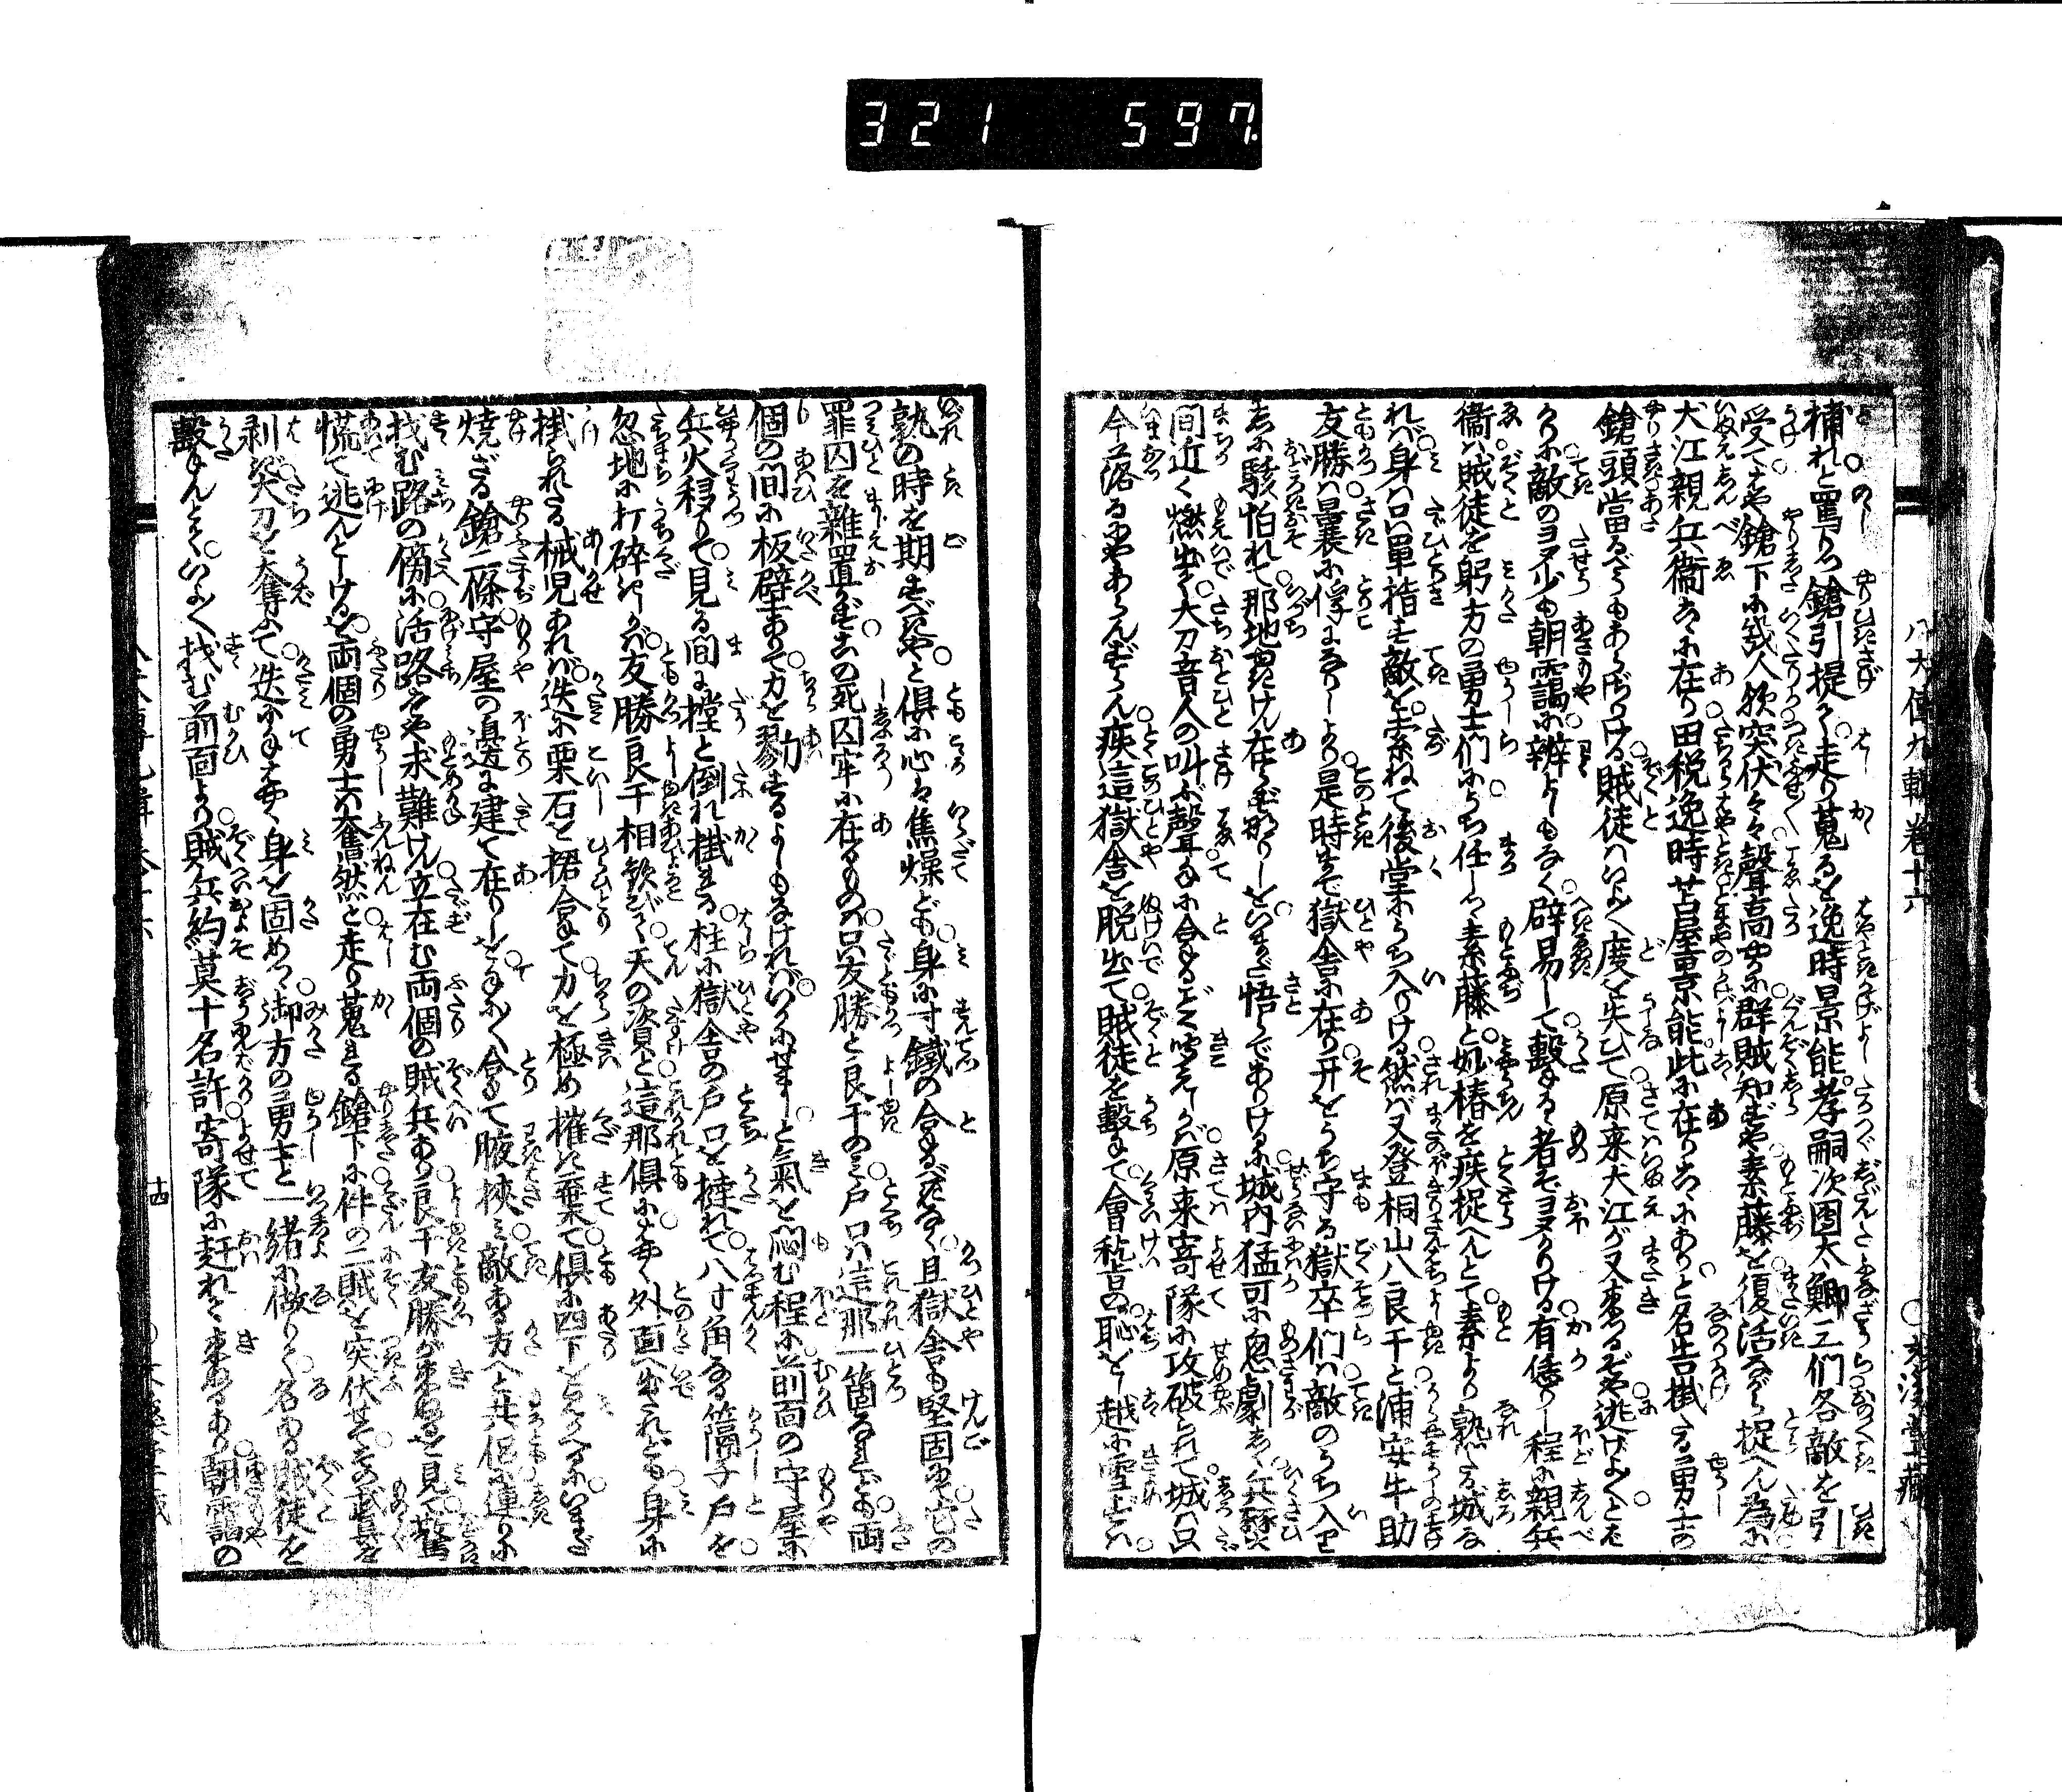 321 597
八犬傳九輯卷十六
捕れと罵りつ鎗引提て走り蒐るを逸時景能孝嗣次團太鯽三们各敵を引
受て
鎗下に幾人欤突伏々々聲高やかに群賊知ずや素藤を復活ながら捉へん為に
犬江親兵衞こゝに在り田税逸時苫屋景能此に在りこゝにありと名告掛たる勇士の
鎗頭當るべうもあらざりける賊徒はいよゝ度を失ひて原来犬江が又来たるぞや逃げよ〳〵と
敵の多少も朝靄に辨よしもなく辟易して撃るゝ者ぞ多かりける有偖し程に親兵
衞は賊徒を躬方の勇士們にうち任しつゝ素藤と妙椿を疾捉へんとて素より熟たる城な
れば身は只單褚を敵を索ねて後堂にうち入りける然ば又登桐山八良干と浦安牛助
友勝は曩に俘になりしより是時まで獄舎に在り开をうち守る獄卒們は敵のうち入りし
に駭怕れて那地ゆきけん在らずなりしをいまだ悟らでありけるに城内猛可に怱劇しく兵燹
間近く燃出て大刀音人の叫ぶ聲手に合るごとく聞えしかば原来寄隊に攻破られて城は只
今落るにやあらんずらん疾這獄舎を脱出て賊徒を撃て會稽の恥を越に雪ずは
孰の時を期すべきやと倶に心は焦燥ども身に寸鐵の合るべきなく且獄舎も堅固にて它の
罪囚を雜置かずこの死囚牢に在るものは只友勝と良干のみ戸口は這那一箇なれども両
個の間に板壁ありて力を勠するよしもなければいかにせましと氣を悶む程に前面の守屋に
兵火移りて見る間に撞と倒れ掛れる柱に獄舎の戸口を㨨れて八寸角なる隔子戸を
忽地に打碎きしかば友勝良干相歓びて天の資と這那倶に
外面へ出たれども身に
掛られたる械兒あれば迭に栗石を捃合て力を極め摧き棄て倶に四下を見かへるにいまだ
焼ざる鎗二條守屋の邊に建て在りしを
合て腋挾み敵ある方へと共侶に連りに
找む路の傍に活路を求難けん立在む両個の賊兵あり良干友勝が来ぬるを見て驚
慌て逃んとしけるを両個の勇士は奮然と走り蒐れる鎗下に件の二賊を突伏せてその武具を
剥ぎ大刀を奪ふて迭に
身を固めつゝ御方の勇士と一緒に做りて名ある賊徒を
撃んとていよゝ找む前面より賊兵約莫十名許寄隊に赶れて来ぬるあり朝靄の
十四